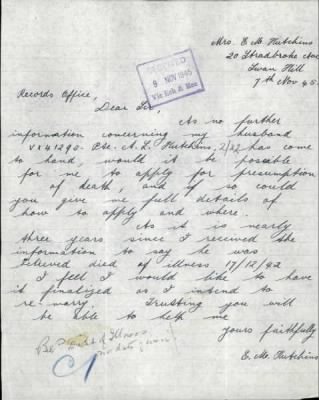 Mrs. E. M. Hutchins
20 Stradbroke Ave
Swan Hill
7th Nov 45.
RECEIVED
9 NOV 1945
Vic Ech & Rec
Records Office,
Dear Sir,
As no further
information concerning my husband
VX41290 - Pte. A. L. Hutchins, 2/22 has come
to hand, would it be possible
for me to apply for presumption
of death, and if so could
you give me full details of
how to apply and where.
As it is nearly
three years since I received the
information to say he was
believed died of illness 17/12/42
I feel I would like to have
it finalized as I intend to
re-marry. Trusting you will
be able to help me
yours faithfully
E. M. Hutchins
Bel Died of Illness
no date given